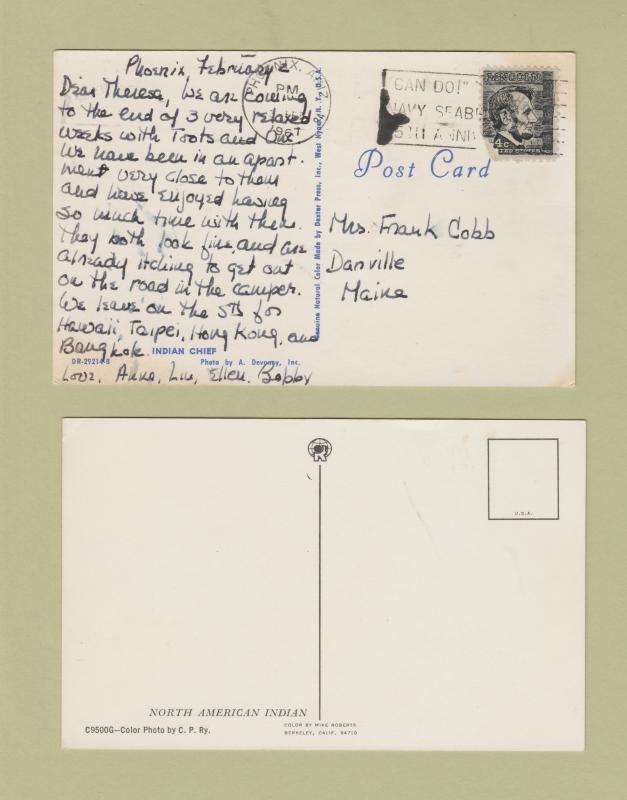 Phoenix, February 2
Dear Theresa, We are coming
to the end of 3 very relaxed
weeks with Toots and
We have been in an apart-
ment very close to them
and have enjoyed having
so much time with them.
They both look fine, and are
already itching to get out
on the road in the camper.
We leave on the 5th for
Hawaii, Taipei, Hong Kong, and
Bangkok.
INDIAN CHIEF
DR-29214-B
Photo by A. Devaney, Inc.
Love, Anna, Lin, Ellen, Bobby
Genuine Natural Color Made by Dexter Press, Inc., West Nyack, N. Y., U.S.A.
PHOENIX, ARIZ.
PM
1967
"CAN DO!"
NAVY SEABE
5TH ANNI
LINCOLN
4c
UNITED STATES
Post Card
Mrs. Frank Cobb
Danville
Maine
U.S.A.
NORTH AMERICAN INDIAN
C9500G—Color Photo by C. P. Ry.
COLOR BY MIKE ROBERTS
BERKELEY, CALIF. 94710